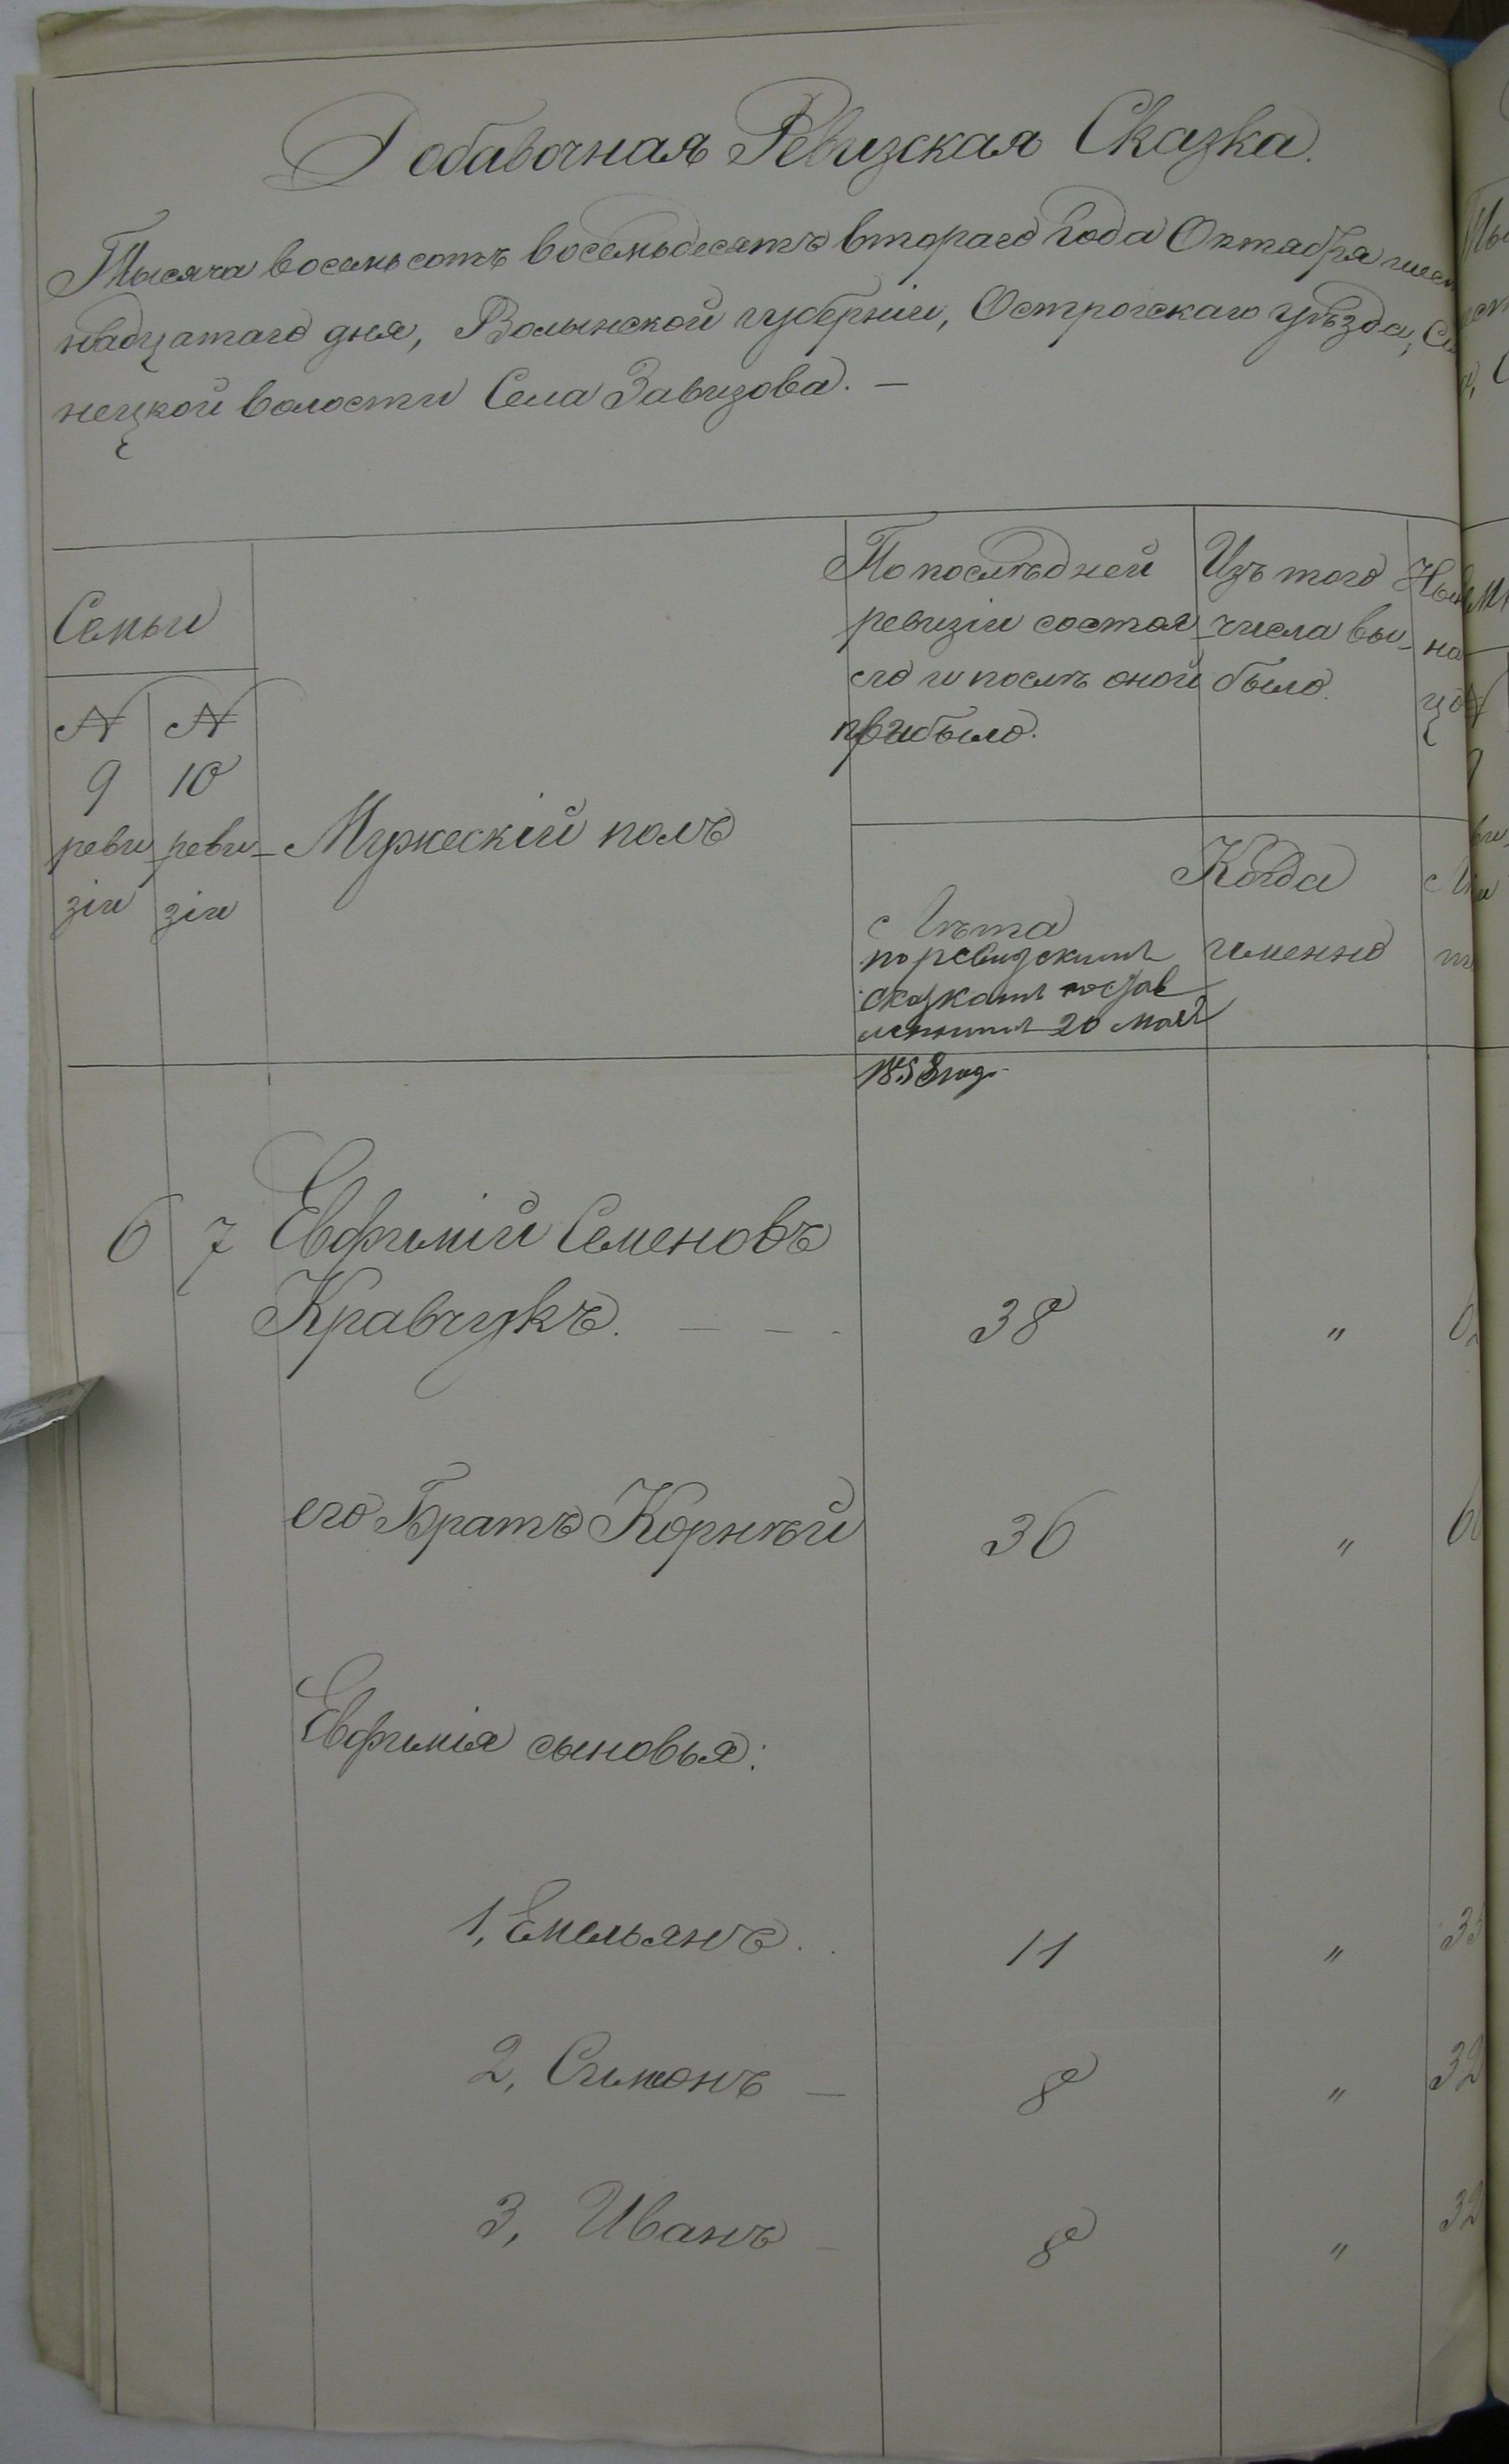 Добавочная Ревизская Сказка.
Тысяча восемьсотъ восемьдесятъ втораго года Октября шест
надцатаго дня, Волынской губерніи, Острогскаго уѣзда, Си
нецкой волости Села Завизова. —
Семьи
По послѣдней
ревизіи состоя
ло и послѣ оной
прибыло.
Изъ того
числа вы-
было.
Ны
на
ц
№ №
9 10
реви- реви-
зіи зіи
Мужескій полъ
Лѣта
по ревизскимъ
сказкамъ состав
леннымъ 20 мая
1858 год.
Когда
именно
Лѣ
6 7 Евфимій Семеновъ
Кравчукъ. — — - 38 "
его Братъ Корнѣй 36 "
Евфимія сыновья:
1, Емельянъ . . 11 " 33
2, Симонъ — 8 " 32
3, Иванъ - 8 " 32